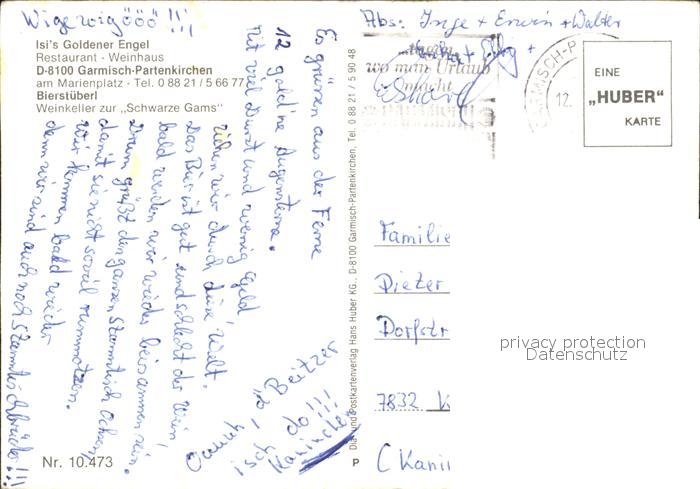 Wigewigööö!!!
Isi's Goldener Engel
Restaurant - Weinhaus
D-8100 Garmisch-Partenkirchen
am Marienplatz · Tel. 0 88 21 / 5 66 77
Bierstüberl
Weinkeller zur „Schwarze Gams"
Es grüssen aus der Ferne
12 gold'ne Augensterne.
Mit viel Durst und wenig Geld,
ziehen wir durch diese Welt.
Das Bier ist gut und schlecht der Wein,
bald werden wir wieder beisammen sein.
Drum grüßt den ganzen Stammtisch Ochsen
damit sie nicht soviel rummotzen.
Wir kommen bald wieder
denn wir sind auch noch Stammtischbrüder!!!
Nr. 10.473
Dia- und Postkartenverlag Hans Huber KG., D-8100 Garmisch-Partenkirchen, Tel. 0 88 21 / 5 90 48
P
Abs: Inge + Erwin + Walter
wo man Urlaub
macht
GARMISCH-P
12.
EINE
„HUBER"
KARTE
Familie
Dieter
Dorfstr
7832 K
privacy protection
Datenschutz